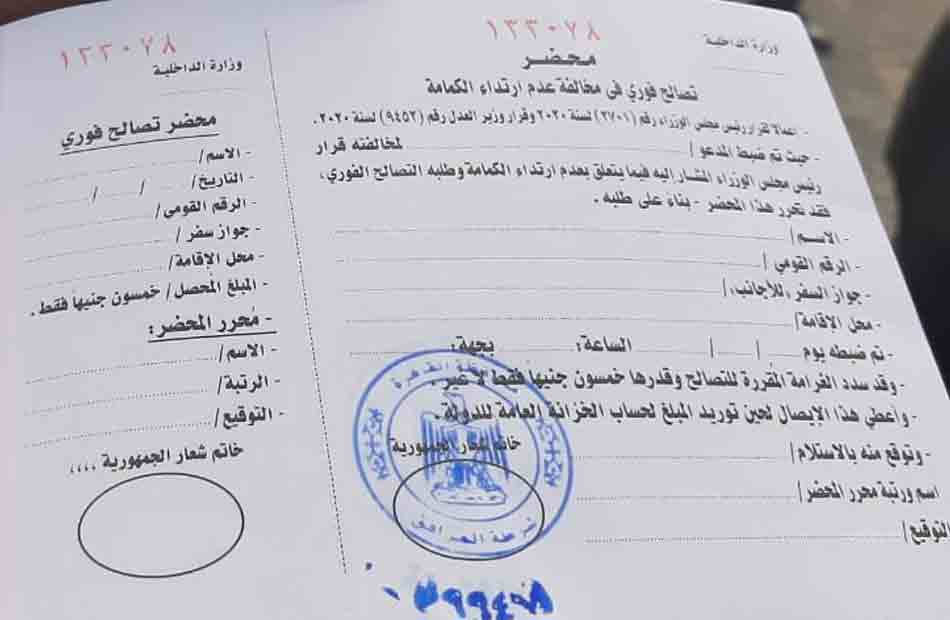 ١٣٣٠٧٨
وزارة الداخلية
محضر
تصالح فوري فى مخالفة عدم ارتداء الكمامة
- اعمالا لقرار رئيس مجلس الوزراء رقم (٢٧٠١) لسنة ٢٠٢٠ وقرار وزير العدل رقم (٩٤٥٢) لسنة ٢٠٢٠ .
- حيث تم ضبط المدعو / لمخالفته قرار
رئيس مجلس الوزراء المشار إليه فيما يتعلق بعدم ارتداء الكمامة وطلبه التصالح الفوري ،
فقد تحرر هذا المحضر - بناء على طلبه .
- الاسم /
- الرقم القومي /
- جواز السفر ، للأجانب، /
- محل الاقامة /
- تم ضبطه يوم / / الساعة : بجهة :
- وقد سدد الغرامة المقررة للتصالح وقدرها خمسون جنيهاً فقط لا غير .
- وأعطي هذا الإيصال لحين توريد المبلغ لحساب الخزانة العامة للدولة .
خاتم شعار الجمهورية
- وتوقع منه بالاستلام /
اسم ورتبة محرر المحضر /
التوقيع /
القاهرة
شرطة المرافق
١٣٣٠٧٨
وزارة الداخلية
محضر تصالح فوري
- الاسم /
- التاريخ / / /
- الرقم القومى /
- جواز سفر /
- محل الإقامة /
- المبلغ المحصل / خمسون جنيهاً فقط .
- مُحرر المحضر :
- الاسم /
- الرتبة /
- التوقيع /
خاتم شعار الجمهورية ،،،،